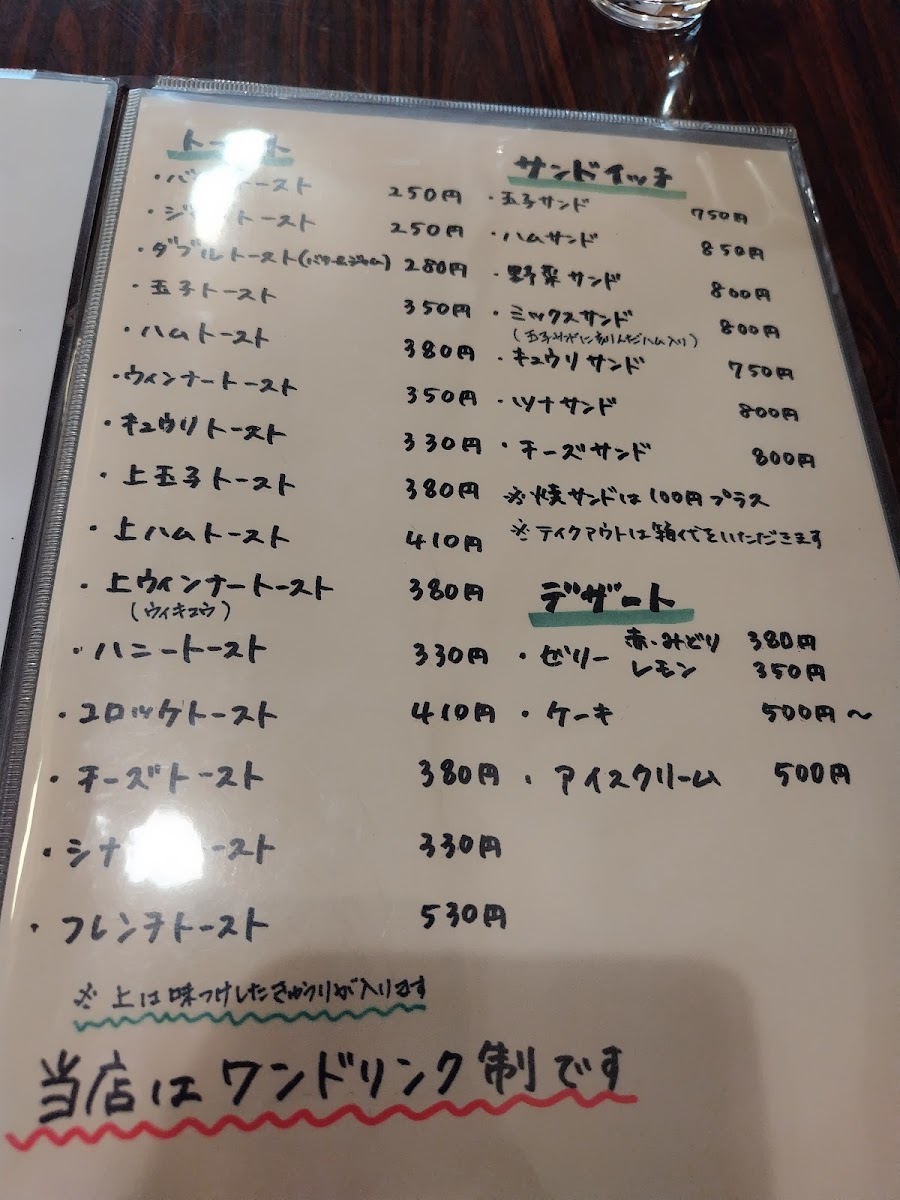 トースト
・バ トースト 250円
・ジ トースト 250円
・ダブルトースト(バター&ジャム) 280円
・玉子トースト 350円
・ハムトースト 380円
・ウィンナートースト 350円
・キュウリトースト 330円
・上玉子トースト 380円
・上ハムトースト 410円
・上ウィンナートースト 380円
(ウィキュウ)
・ハニートースト 330円
・コロッケトースト 410円
・チーズトースト 380円
・シナ ースト 330円
・フレンチトースト 530円
※上は味つけしたきゅうりが入ります
サンドイッチ
・玉子サンド 750円
・ハムサンド 850円
・野菜サンド 800円
・ミックスサンド 800円
(玉子 に刻んだハム入り)
・キュウリサンド 750円
・ツナサンド 800円
・チーズサンド 800円
※焼サンドは100円プラス
※テイクアウトは箱代をいただきます
デザート
・ゼリー 赤・みどり 380円
レモン 350円
・ケーキ 500円〜
・アイスクリーム 500円
当店はワンドリンク制です